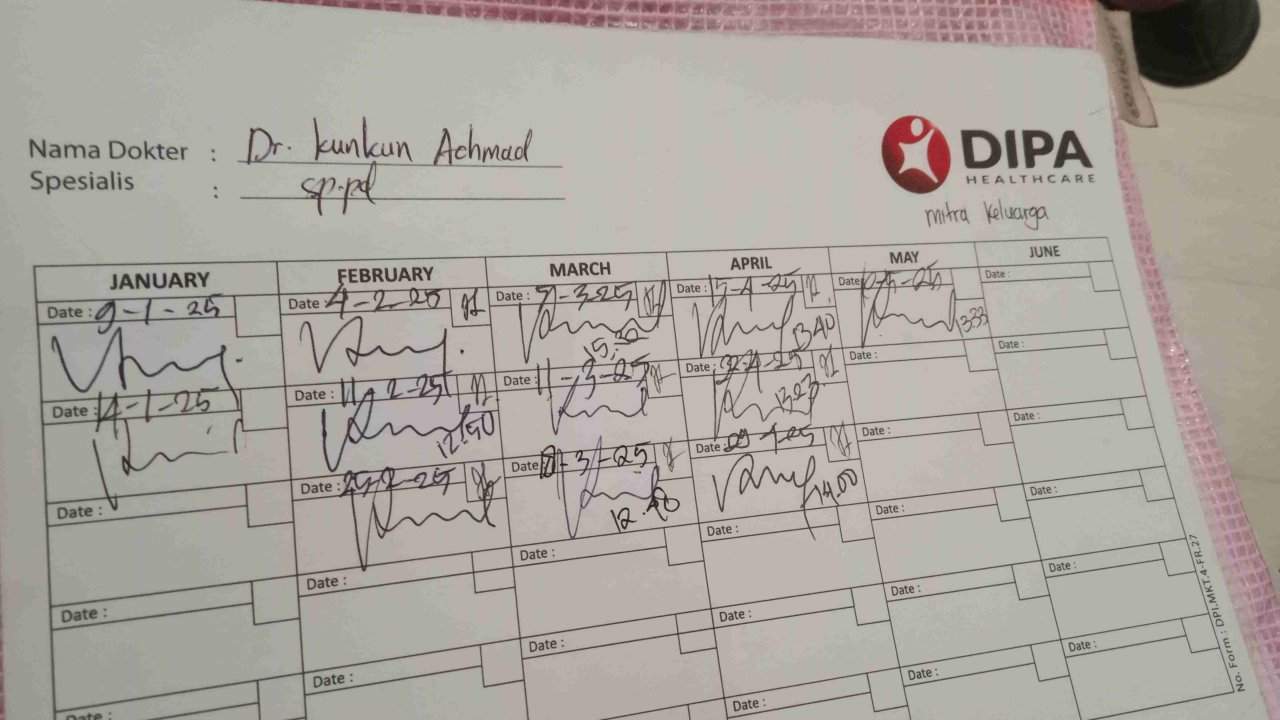 Nama Dokter : Dr. Kunkun Achmad
Spesialis : sp.pd
DIPA
HEALTHCARE
mitra keluarga
JANUARY FEBRUARY MARCH APRIL MAY JUNE
Date : 9-1-25 Date : 4-2-25 Date : -3-25 Date : 15-4-25 Date : Date :
15.30 13.40 13.33
Date : 14-1-25 Date : 11-2-25 Date : 11-3-25 Date : 22-4-25 Date : Date :
12.50 13.23
Date : Date : 25-2-25 Date : -3-25 Date : 29-4-25 Date : Date :
12.40 14.00
Date : Date : Date : Date : Date : Date :
Date : Date : Date : Date : Date : Date :
Date : Date : Date : Date :
No. Form : DPI.MKT.4-FR.27